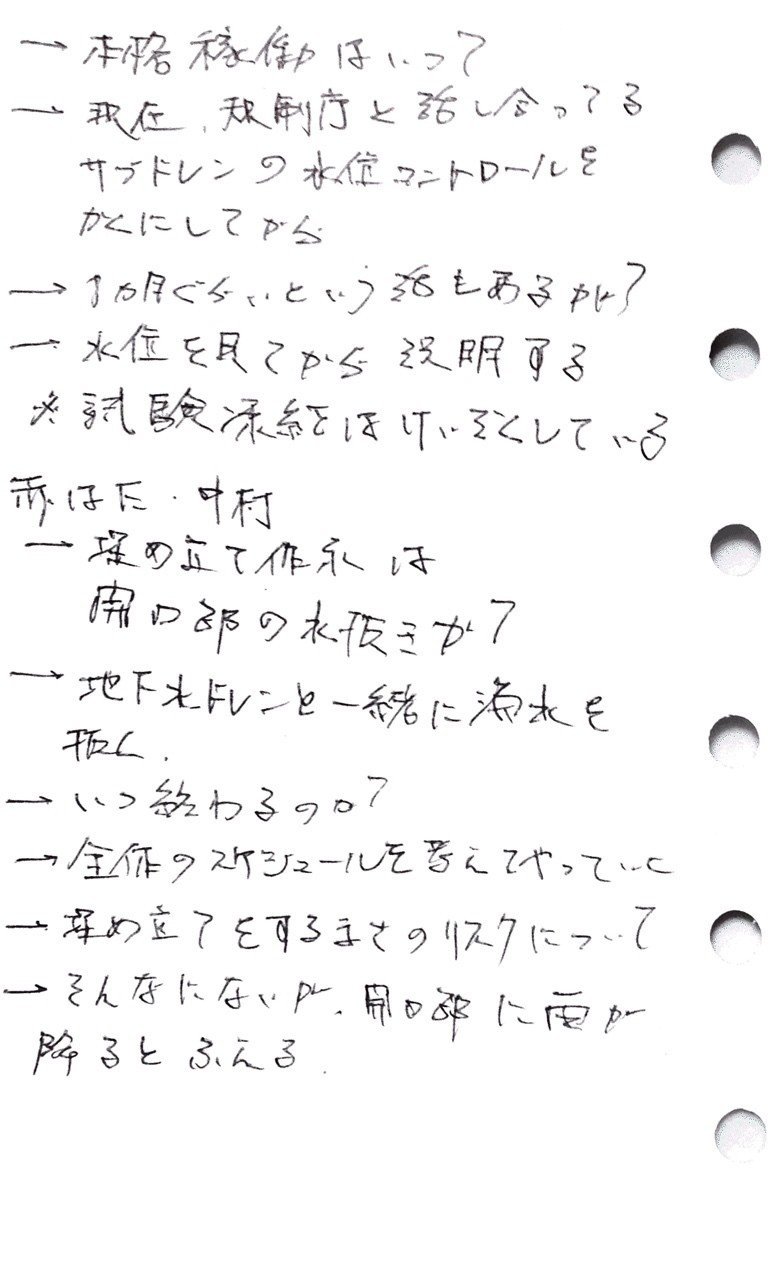 → 本格稼働はいつ?
→ 現在、規制庁と話し合ってる
サブドレンの水位コントロールを
かくにしてから
→ 1カ月ぐらいという話もあるが?
→ 水位を見てから説明する
※ 試験凍結はけいぞくしている
赤はた・中村
→ 埋め立て作業は
開口部の水抜きか?
→ 地下水ドレンと一緒に漏水を
抜く.
→ いつ終わるのか?
→ 全体のスケジュールを考えてやっていく
→ 埋め立てをするまでのリスクについて
→ そんなにないが、開口部に雨が
降るとふえる.